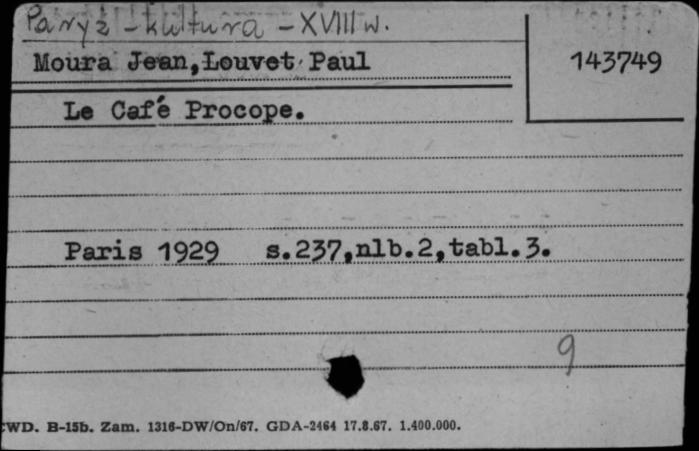 Paryż - kultura - XVIII w.
Moura Jean,Louvet Paul
143749
Le Café Procope.
Paris 1929 s.237,nlb.2,tabl.3.
9
CWD. B-15b. Zam. 1316-DW/On/67. GDA-2464 17.8.67. 1.400.000.